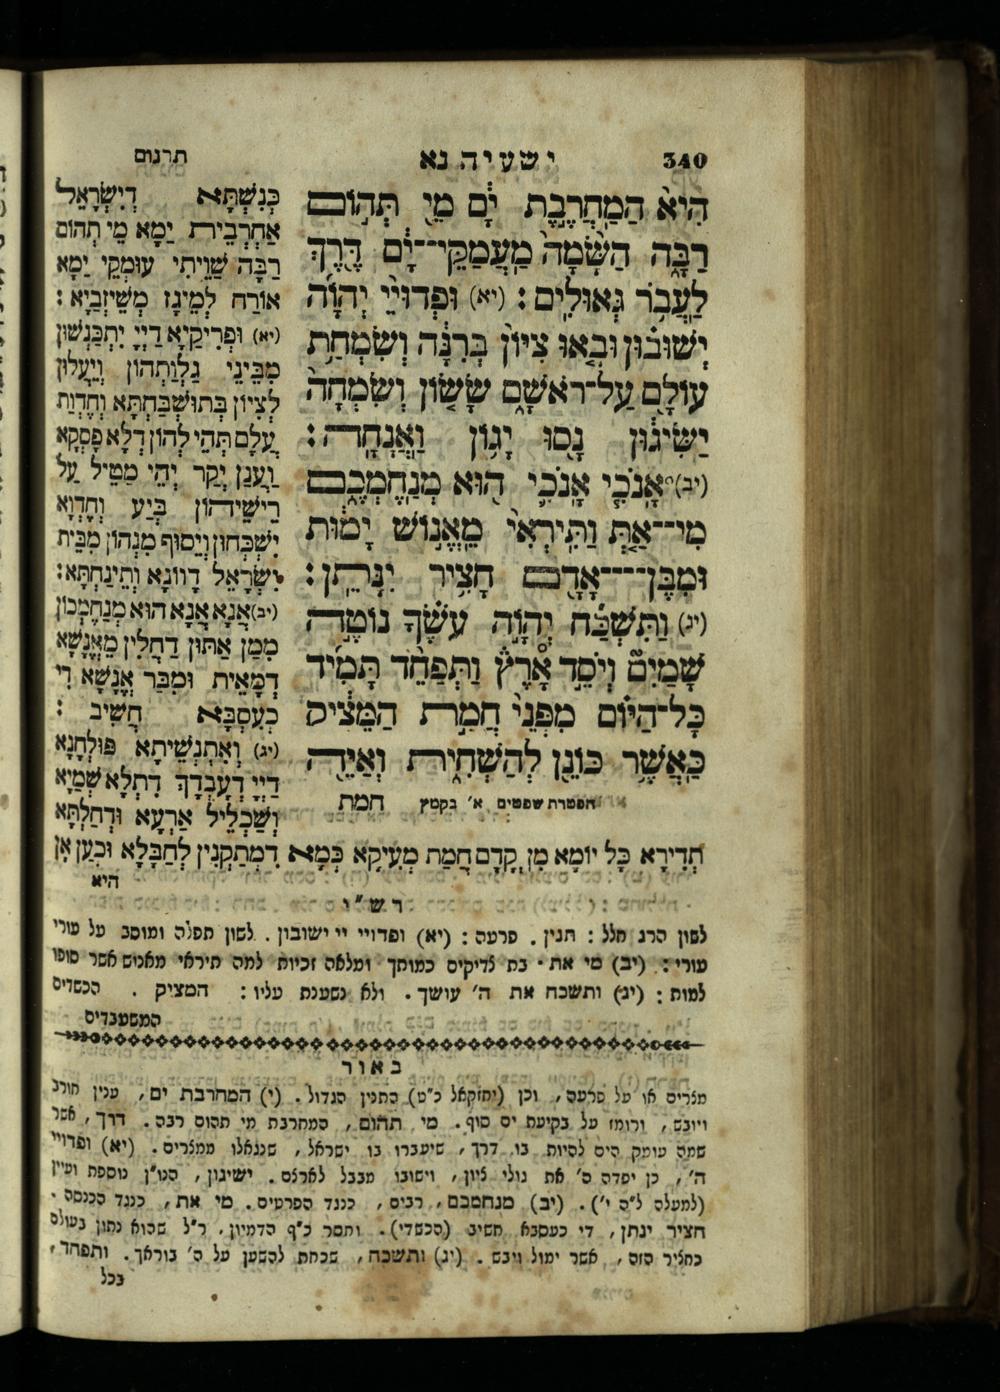 340
ישעיה נא
תרגום
הִיא הַמַּחֲרֶבֶת יָם מֵי תְּהוֹם
רַבָּה הַשָּׂמָה מַעֲמַקֵּי־יָם דֶּרֶךְ
לַעֲבֹר גְּאוּלִים: (יא) וּפְדוּיֵי יְהוָֹה
יְשׁוּבוּן וּבָאוּ צִיּוֹן בְּרִנָּה וְשִׂמְחַת
עוֹלָם עַל־רֹאשָׁם שָׂשׂוֹן וְשִׂמְחָה
יַשִּׂיגוּן נָסוּ יָגוֹן וַאֲנָחָה:
(יב) אָנֹכִי אָנֹכִי הוּא מְנַחֶמְכֶם
מִי־אַתְּ וַתִּירְאִי מֵאֱנוֹשׁ יָמוּת
וּמִבֶּן־אָדָם חָצִיר יִנָּתֵן:
(יג) וַתִּשְׁכַּח יְהוָֹה עֹשֶׂךָ נוֹטֶה
שָׁמַיִם וְיֹסֵד אָרֶץ וַתְּפַחֵד תָּמִיד
כָּל־הַיּוֹם מִפְּנֵי חֲמַת הַמֵּצִיק
כַּאֲשֶׁר כּוֹנֵן לְהַשְׁחִית וְאַיֵּה
הפטרת שפטים א' בקמץ
חמת
כְּנִשְׁתָּא דְיִשְׂרָאֵל
אַחֲרֵבִית יַמָּא מֵי תְהוֹם
רַבָּה שַׁוֵיתִי עוּמְקֵי יַמָּא
אוֹרַח לְמֵיגַז מְשֵׁיזְבַיָא:
(יא) וּפְרִיקַיָא דַיְיָ יִתְכַּנְשׁוּן
מִבֵּינֵי גַלְוַתְהוֹן וְיֵעֲלוּן
לְצִיּוֹן בְּתוּשְׁבַּחְתָּא וְחֶדְוַת
עֲלַם תְּהֵי לְהוֹן דְלָא פָסְקָא
וַעֲנַן יְקַר יְהֵי מַטֵיל עַל
רֵישֵׁיהוֹן בִּיעַ וְחֶדְוָא
יִשְׁכְּחוּן וְיֵסוּף מִנְהוֹן מִבֵּית
יִשְׂרָאֵל דָווֹנָא וְתֵינַחְתָּא:
(יב) אֲנָא אֲנָא הוּא מְנַחֶמְכוֹן
מִמַן אַתּוּן דַחֲלִין מֵאֱנָשָׁא
דְמָאִית וּמִבַּר אֱנָשָׁא דִי
כְעִסְבָּא חֲשִׁיב:
(יג) וְאִתְנְשֵׁיתָא פּוּלְחָנָא
דַיְיָ דְעָבְדָךְ דִתְלָא שְׁמַיָא
וְשַׁכְלֵיל אַרְעָא וּדְחַלְתָּא
תְדִירָא כָּל יוֹמָא מִן קֳדָם חֲמַת מְעִיקָא כְּמָא דִמְתַקְנִין לְחַבָּלָא וּכְעַן אָן
היא
רש"י
לשון הרג חלל: תנין. פרעה: (יא) ופדויי יי ישובון. לשון תפלה ומוסב על עורי
עורי: (יב) מי את. בת צדיקים כמותך ומלאה זכיות למה תיראי מאנוש אשר סופו
למות: (יג) ותשכח את ה' עושך. ולא נשענת עליו: המציק. הכשדים
המשעבדים
באור
מצרים או על פרעה, וכן (יחזקאל כ"ט) התנין הגדול. (י) המחרבת ים, ענין חורב
ויובש, ורומז על בקיעת ים סוף. מי תהום, המחרבת מי תהום רבה. דרך, אשר
שמה עומק הים להיות בו דרך, שיעברו בו ישראל, שנגאלו ממצרים. (יא) ופדויי
ה', כן יפדה ה' את גולי ציון, וישובו מבבל לארצם. ישיגון, הנו"ן נוספת ועיין
(למעלה ל"ה י'). (יב) מנחמכם, רבים, כנגד הפרטים. מי את, כנגד הכנסה.
חציר ינתן, די כעסבא חשיב (הכשדי). וחסר כ"ף הדמיון, ר"ל שהוא נתון בעולם
כחציר הזה, אשר ימול ויבש. (יג) ותשכח, שכחת להשען על ה' בוראך. ותפחד,
בכל